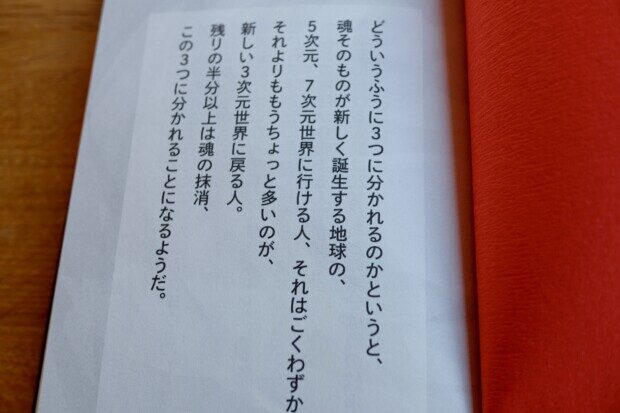 どういうふうに３つに分かれるのかというと、
魂そのものが新しく誕生する地球の、
５次元、７次元世界に行ける人、それはごくわずか
それよりももうちょっと多いのが、
新しい３次元世界に戻る人。
残りの半分以上は魂の抹消、
この３つに分かれることになるようだ。